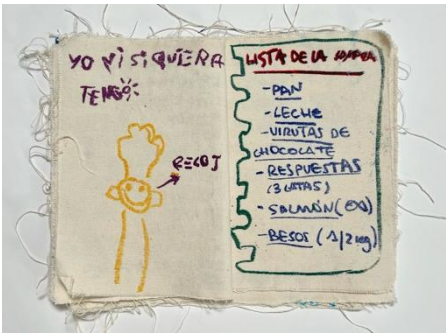 YO NI SIQUIERA
TENGO
RELOJ
LISTA DE LA COMPRA
- PAN
- LECHE
- VIRUTAS DE
CHOCOLATE
- RESPUESTAS
(3 LATAS)
- SALMÓN
- BESOS (1/2 kg)